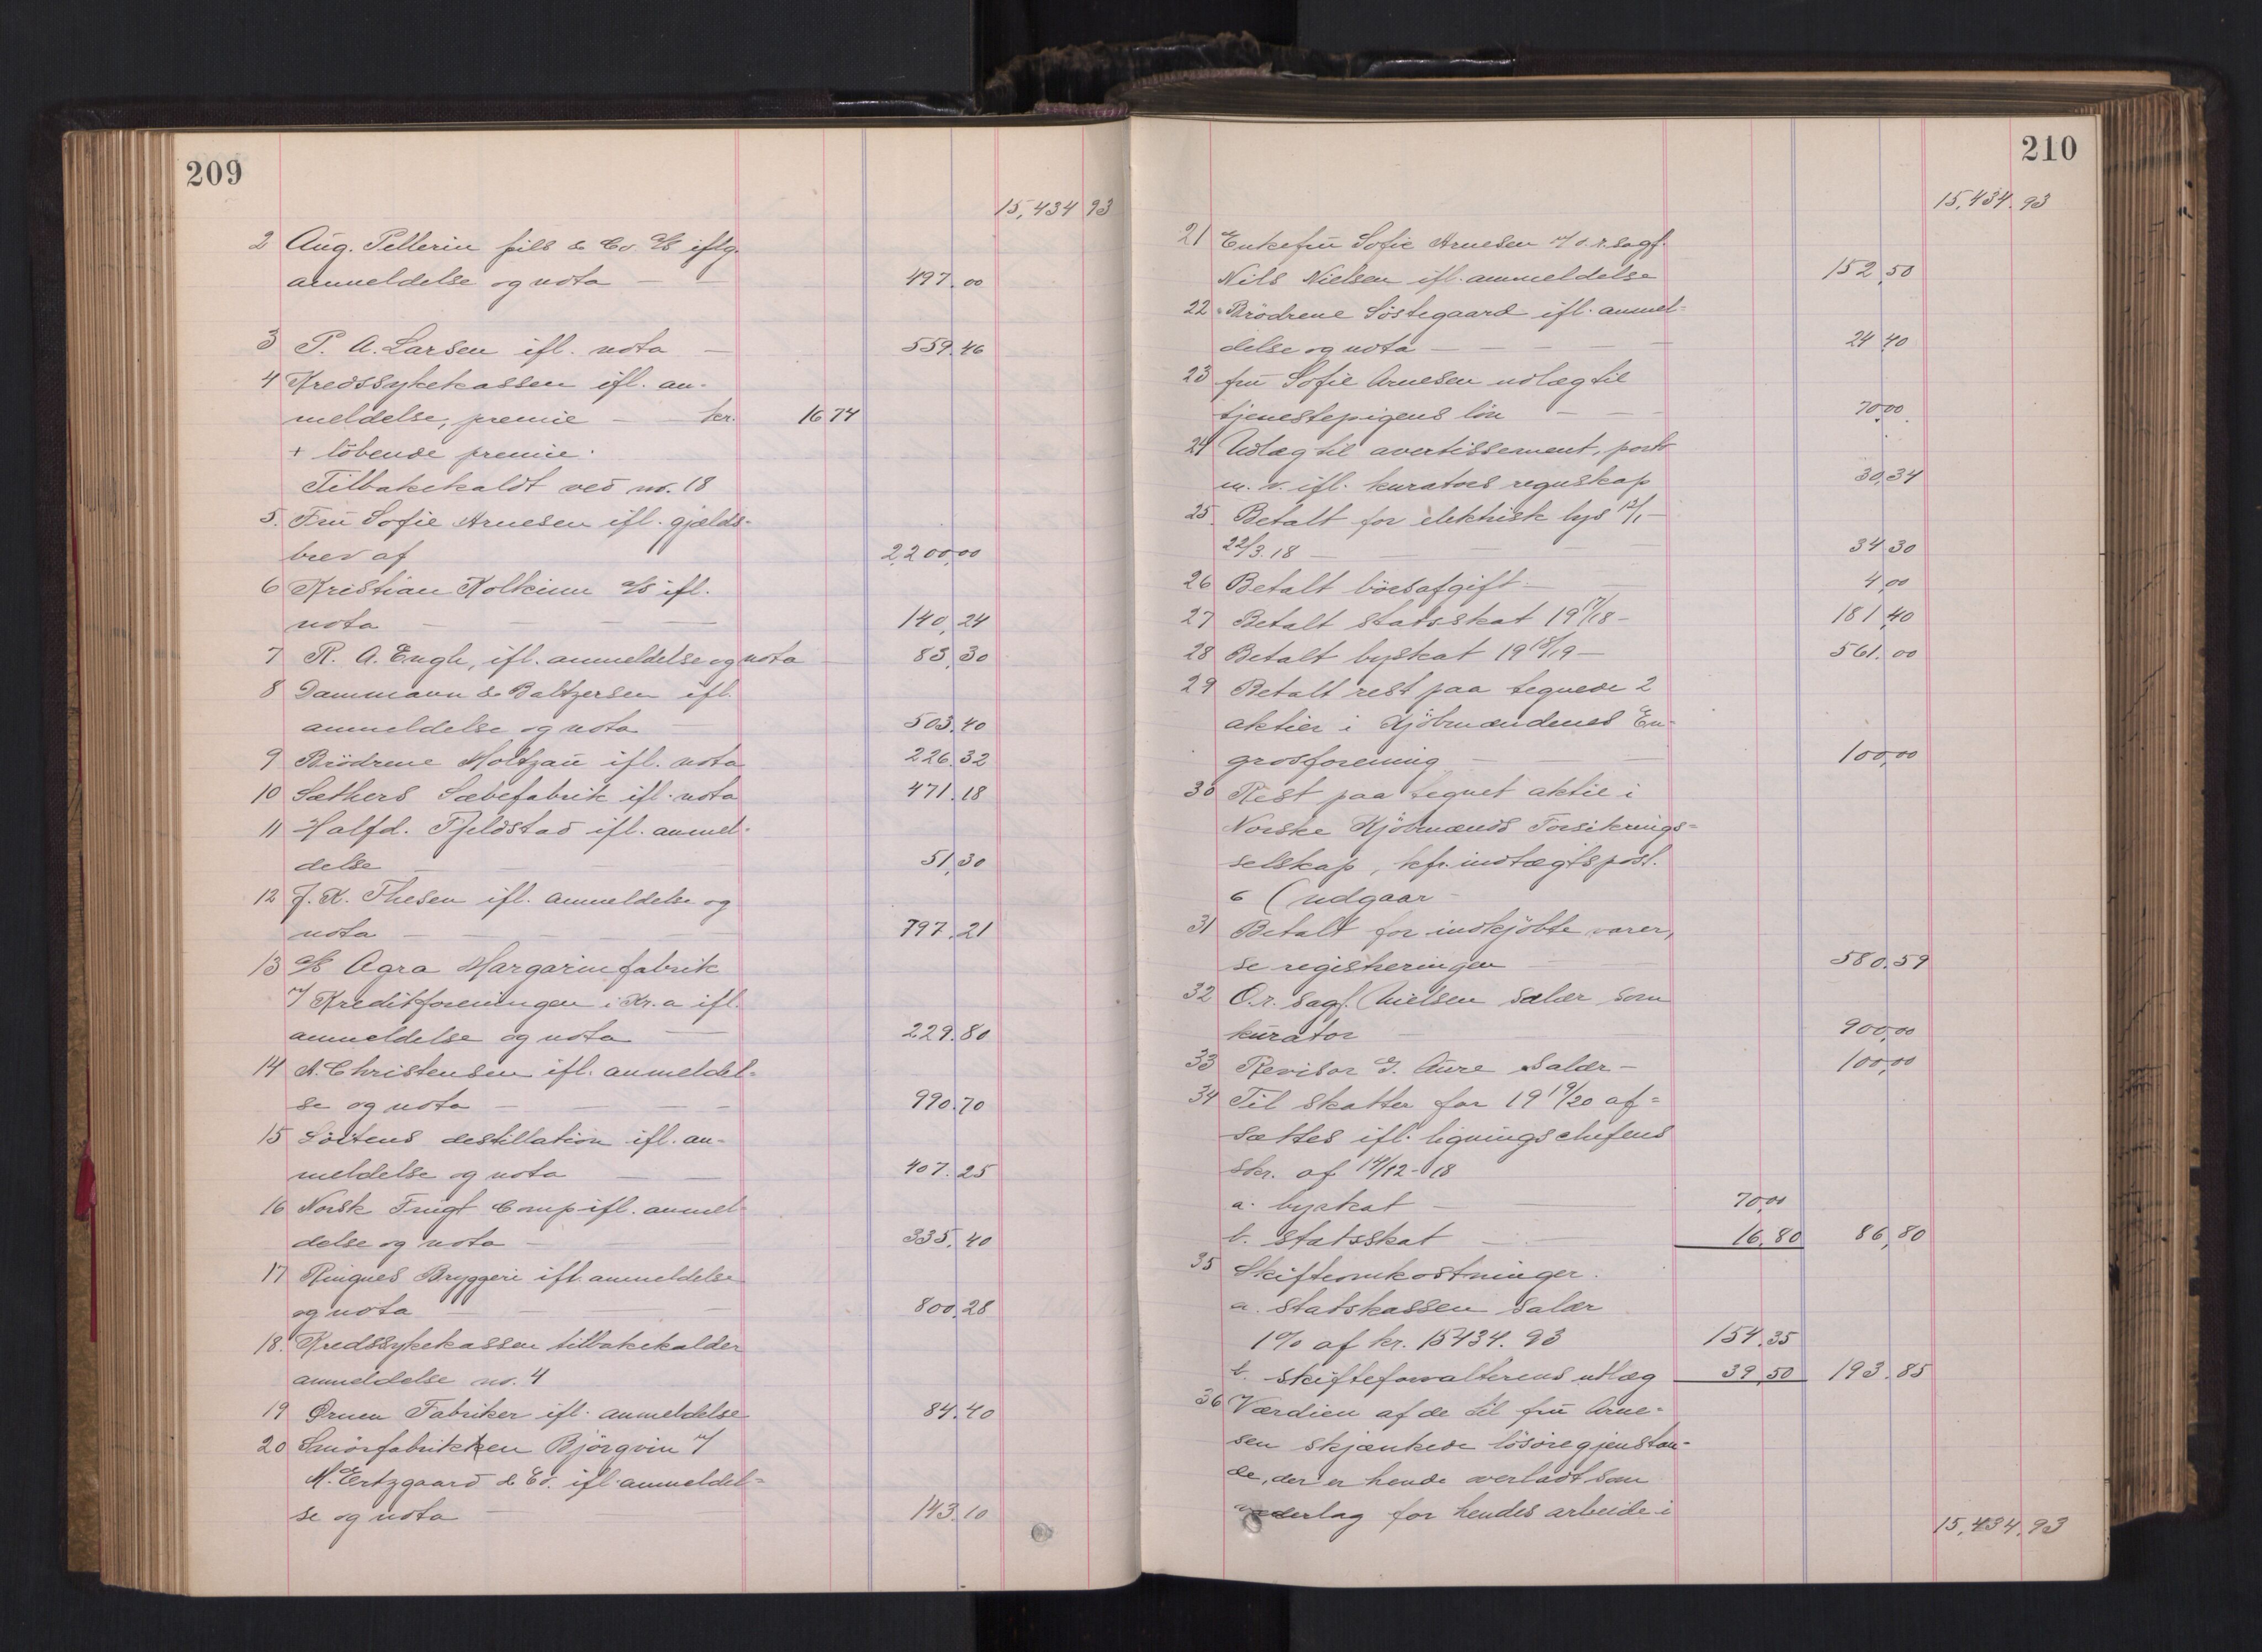 209
15,434 93
2 Aug. Pellerin fils & Co. A/S iflg.
anmeldelse og nota — — 497.00
3 P. A. Larsen ifl. nota — 559.46
4 Kredssykekassen ifl. an-
meldelse, premie — kr. 16 74
+ löbende premie.
Tilbakekaldt ved no. 18
5. Fru Sofie Arnesen ifl. gjælds-
brev af 2,200,00
6 Kristian Kolkinn A/S ifl.
nota — — — — 140,24
7 R. A. Engh, ifl. anmeldelse og nota 83,30
8 Dammann & Baltzersen ifl.
anmeldelse og nota — 503.40
9 Brödrene Holtzau ifl. nota 226.32
10 Sæthers Sæbefabrik ifl. nota 471.18
11 Halfd. Fjeldstad ifl. anmel-
delse — 51,30
12 J. K. Thesen ifl. anmeldelse og
nota — — — 797.21
13 A/S Agra Margarinfabrik
v/ Kreditforeningen i Kr.a ifl.
anmeldelse og nota — 229.80
14 A. Christensen ifl. anmeldel-
se og nota — — — 990.70
15 Loitens destillation ifl. an-
meldelse og nota — — 407.25
16 Norsk Frugt Comp ifl. anmel-
delse og nota — — 335.40
17 Ringnes Bryggeri ifl. anmeldelse
og nota — — — 800.28
18. Kredssykekassen tilbakekalder
anmeldelse no. 4
19 Ørnen Fabriker ifl. anmeldelse 84.40
20 Smörfabrikken Björgvin v/
M. Ertzgaard & Co. ifl. anmeldel-
se og nota — — 143.10
210
15,434.93
21 Enkefru Sofie Arnesen v/ o.r.sagf.
Nils Nielsen ifl. anmeldelse 152,50
22 Brödrene Söstegaard ifl. anmel-
delse og nota — — — — 24 40
23 fru Sofie Arnesen udlæg til
tjenestepigens lön — — — 70,00
24 Udlæg til avertissement, porto
m. v. ifl. kurators regnskap 30,34
25. Betalt for elektrisk lys 12/1 —
22/3.18 — — — — 34 30
26 Betalt börsafgift — — 4,00
27 Betalt statsskat 19 17/18 — 181,40
28 Betalt byskat 19 18/19 — 561.00
29 Betalt rest paa tegnede 2
aktier i Kjöbmændenes En-
grosforening — — — 100,00
30 Rest paa tegnet aktie i
Norske Kjöbmænds Forsikrings-
selskap, kfr. indtægtspost.
6 (udgaar —
31 Betalt for indkjöbte varer,
se registreringen — — 580.59
32 O.r. sagf. Nielsen salær som
kurator — 900,00
33 Revisor G. Aure salær — 100,00
34 Til skatter for 19 19/20 af-
sættes ifl. ligningschefens
skr. af 14/12-18
a. byskat — 70,00
b. statsskat — 16.80 86,80
35 Skifteomkostninger.
a. statskassen salær
1% af kr. 15434.93 154.35
b. skifteforvalterens utlæg 39,50 193.85
36 Værdien af de til fru Arne-
sen skjænkede lösöregjenstan-
de, der er hende overladt som
vederlag for hendes arbeide i
15,434.93